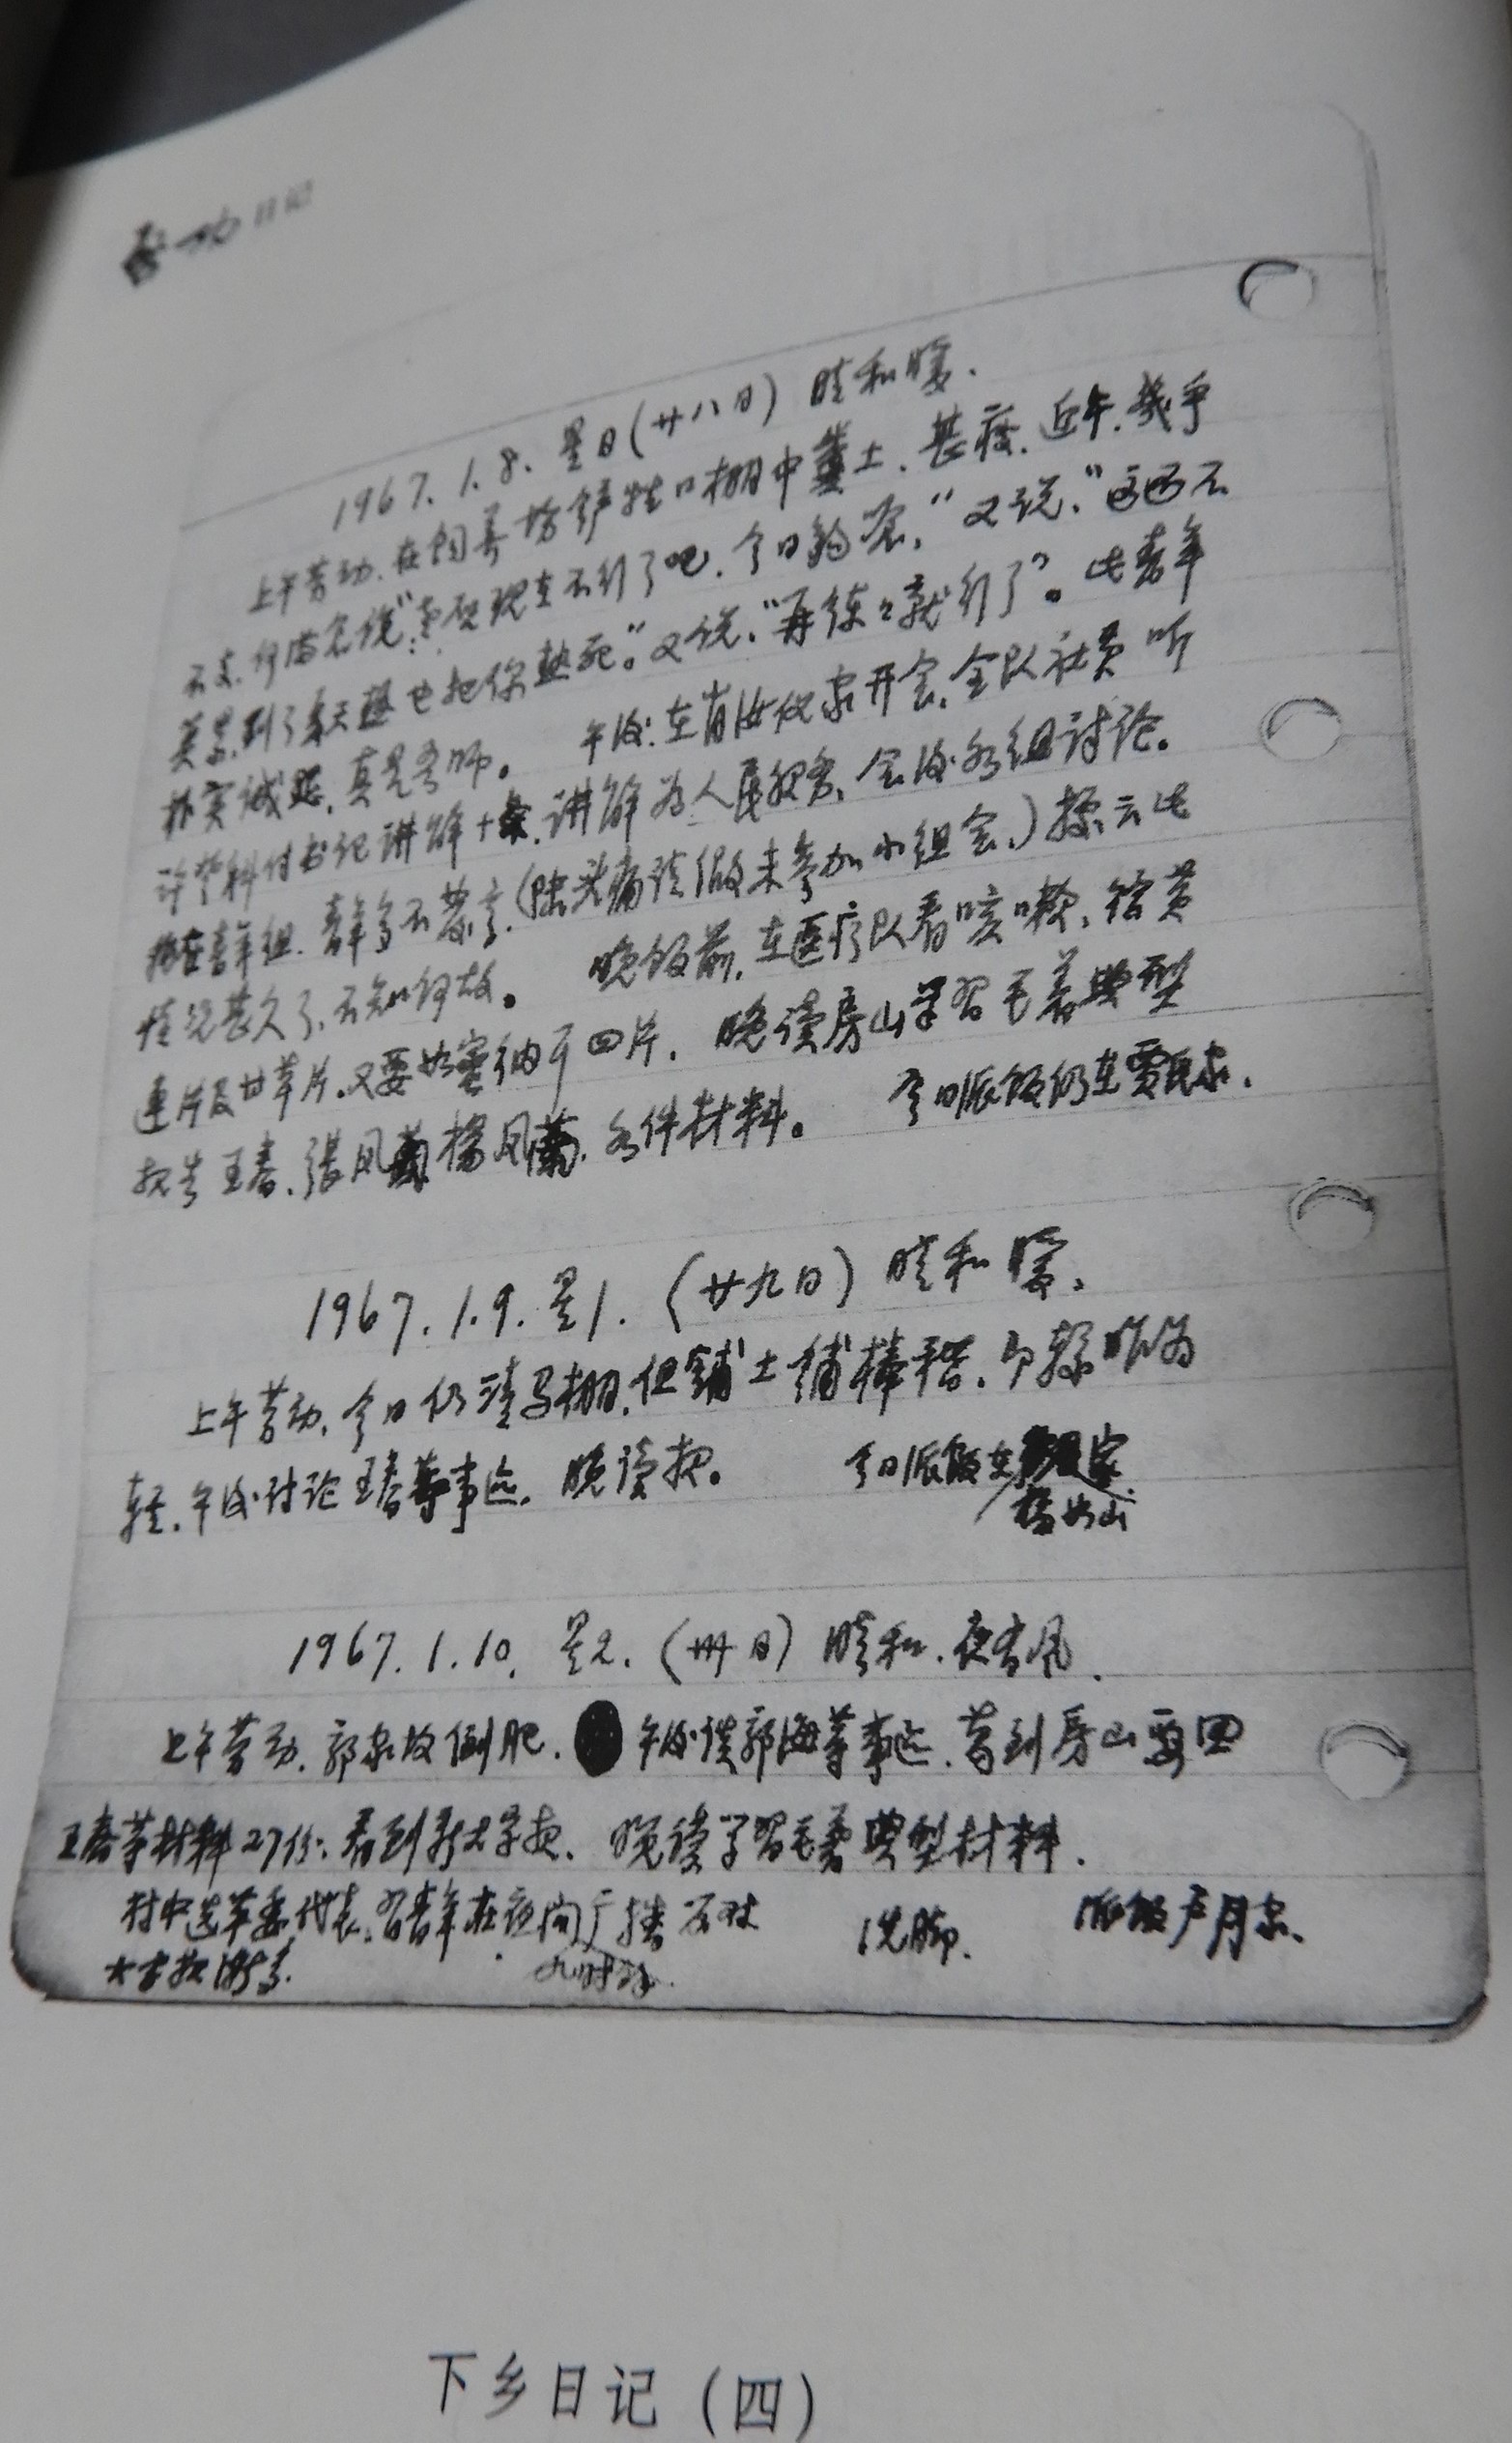 启功日记
1967.1.8.星日(廿八日) 晴和暖.
上午劳动.在饲养场铲牲口棚中粪土.甚疲.近午.几乎
不支.何 说:"现在不行了吧.今日够 ."又说."这还不
算累.到了 天 也把你热死."又说."再练々就行了"。此青年
朴实诚恳.真是吾师。 午后.在肖汝 家开会.全队社员听
许 科 付书记讲解十条.讲解为人民服务.会后分组讨论。
在青年组.青年多不发言.( 头痛请假未参加小组会.)据云此
情况甚久了.不知何故。 晚饭前.在医疗队看咳嗽.给黄
连片及甘草片.又要些塞纳可四片. 晚读房山学习毛著典型
报告王春.张凤 杨凤 .各件材料。 今日派饭仍在贾 家.
1967.1.9.星1.(廿九日) 晴和暖.
上午劳动.今日仍清马棚.但铺土铺棒秸.即较昨为
轻.午后讨论王春等事迹.晚读报。 今日派饭在 家.
杨 山
1967.1.10.星2.(卅日) 晴和.夜有风.
上午劳动.郭家坟倒肥. 午后谈郭海等事迹.葛到房山要回
王春等材料27份.看到新大字报.晚读学习毛著典型材料.
村中选革委代表. 青年在夜间广播 洗脚. 派饭卢 家.
九时
大字报渐多.
下乡日记(四)